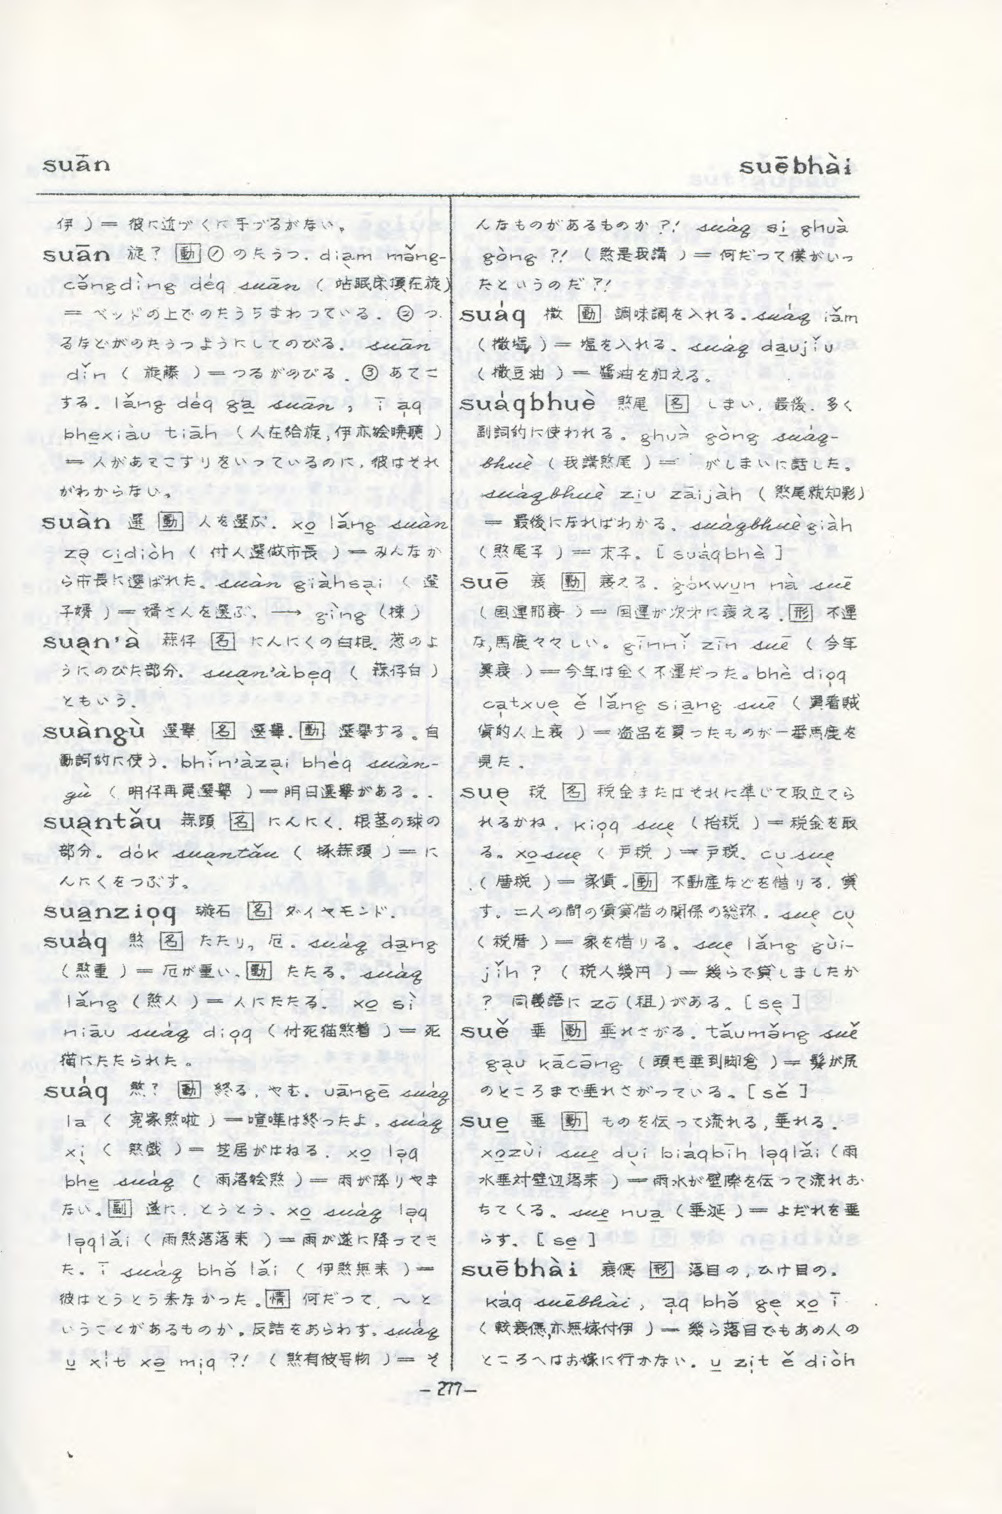 suān
suēbhài
伊 ) ＝ 彼に近づくに手づるがない。
suān 旋? 動 ① のたうつ. diàm mǎng-
cǎngdìng déq suān ( 站眠床頂在旋)
＝ ベッドの上でのたうちまわっている. ② つ
るなどがのたうつようにしてのびる. suān
dǐn ( 旋藤 ) ＝つるがのびる. ③ あてこ
する. lǎng déq ga suān, ī aq
bhexiàu tiāh ( 人在給旋,伊亦 暁聴 )
＝ 人があてこすりをいっているのに, 彼はそれ
がわからない。
suàn 選 動 人を選ぶ. xo lǎng suàn
zə cidiòh ( 付人選做市長 ) ＝ みんなか
ら市長に選ばれた. suàn giàhsai ( 選
子婿 ) ＝ 婿さんを選ぶ. ⟶ gìng (揀)
suan'à 蒜仔 名 にんにくの白根. 葱のよ
うにのびた部分. suan'àbeq ( 蒜仔白 )
ともいう.
suàngù 選挙 名 選挙. 動 選挙する。自
動詞的に使う. bhǐn'àzai bhéq suàn-
gù ( 明仔再 選挙 ) ＝ 明日選挙がある。
suantǎu 蒜頭 名 にんにく. 根茎の球の
部分。 dók suantǎu ( 蒜頭 ) ＝ に
んにくをつぶす。
suanzioq 璇石 名 ダイヤモンド.
suáq 煞 名 たたり, 厄. suáq dang
( 煞重 ) ＝ 厄が重い. 動 たたる。 suáq
lǎng ( 煞人 ) ＝ 人にたたる. xo sì
niāu suáq dioq ( 付死猫煞着 ) ＝ 死
猫にたたられた。
suáq 煞? 動 終る, やむ. uāngē suáq
la ( 冤家煞啦 ) ＝喧嘩は終ったよ. suáq
xì ( 煞戯 ) ＝ 芝居がはねる. xo ləq
bhe suáq ( 雨落 煞 ) ＝ 雨が降りやま
ない。 副 遂に, とうとう. xo suáq ləq
ləqlǎi ( 雨煞落落来 ) ＝ 雨が遂に降ってき
た. ī suáq bhə̌ lǎi ( 伊煞無来 ) ＝
彼はとうとう来なかった。 情 何だって, ～と
いうことがあるものか。反詰をあらわす. suáq
u xít xə miq ?! ( 煞有彼号物 ) ＝ そ
んなものがあるものか ?! suáq si ghuà
gòng ?! ( 煞是我講 ) ＝ 何だって僕がいっ
たというのだ ?!
suáq 撒 動 調味調を入れる. suáq iǎm
( 撒塩 ) ＝ 塩を入れる. suáq daujǐu
( 撒豆油 ) ＝ 醤油を加える。
suáqbhuè 煞尾 名 しまい, 最後. 多く
副詞的に使われる。 ghuà gòng suáq-
bhuè ( 我講煞尾 ) ＝ がしまいに話した。
suáqbhuè ziu zāijàh ( 煞尾就知影)
＝ 最後になればわかる. suáqbhuègiàh
( 煞尾子 ) ＝ 末子. [ suáqbhè ]
suē 衰 動 衰える. gókwun nà suē
( 国運那衰 ) ＝ 国運が次才に衰える. 形 不運
な,馬鹿々々しい。 gīnnǐ zīn suē ( 今年
真衰 ) ＝今年は全く不運だった。 bhè dioq
catxue ě lǎng siang suē ( 買着賊
貨的人上衰 ) ＝ 盗品を買ったものが一番馬鹿を
見た.
sue 税 名 税金またはそれに準じて取立てら
れるかね. kioq sue ( 拾税 ) ＝ 税金を取
る。 xosue ( 戸税 ) ＝ 戸税. cusue
( 厝税 ) ＝ 家賃. 動 不動産などを借りる, 貸
す. 二人の間の賃貸借の関係の総称. sue cu
( 税厝 ) ＝ 家を借りる。 sue lǎng gùi-
jǐh ? ( 税人幾円 ) ＝ 幾らで貸しましたか
? 同義語に zō (租)がある. [ se ]
suě 垂 動 垂れさがる. tǎumǎng suě
gau kācāng ( 頭毛垂到脚倉 ) ＝ 髪が尻
のところまで垂れさがっている。 [ sě ]
sue 垂 動 ものを伝って流れる, 垂れる.
xozùi sue dui biáqbīh ləqlǎi (雨
水垂対壁辺落来 ) ＝ 雨水が壁際を伝って流れお
ちてくる。 sue nua ( 垂涎 ) ＝ よだれを垂
らす. [ se ]
suēbhài 衰 形 落目の, ひけ目の.
káq suēbhài, aq bhə̌ ge xo ī
( 較衰 ,亦無嫁付伊 ) ＝ 幾ら落目でもあの人の
ところへはお嫁に行かない. u zit ě diòh
— 277 —